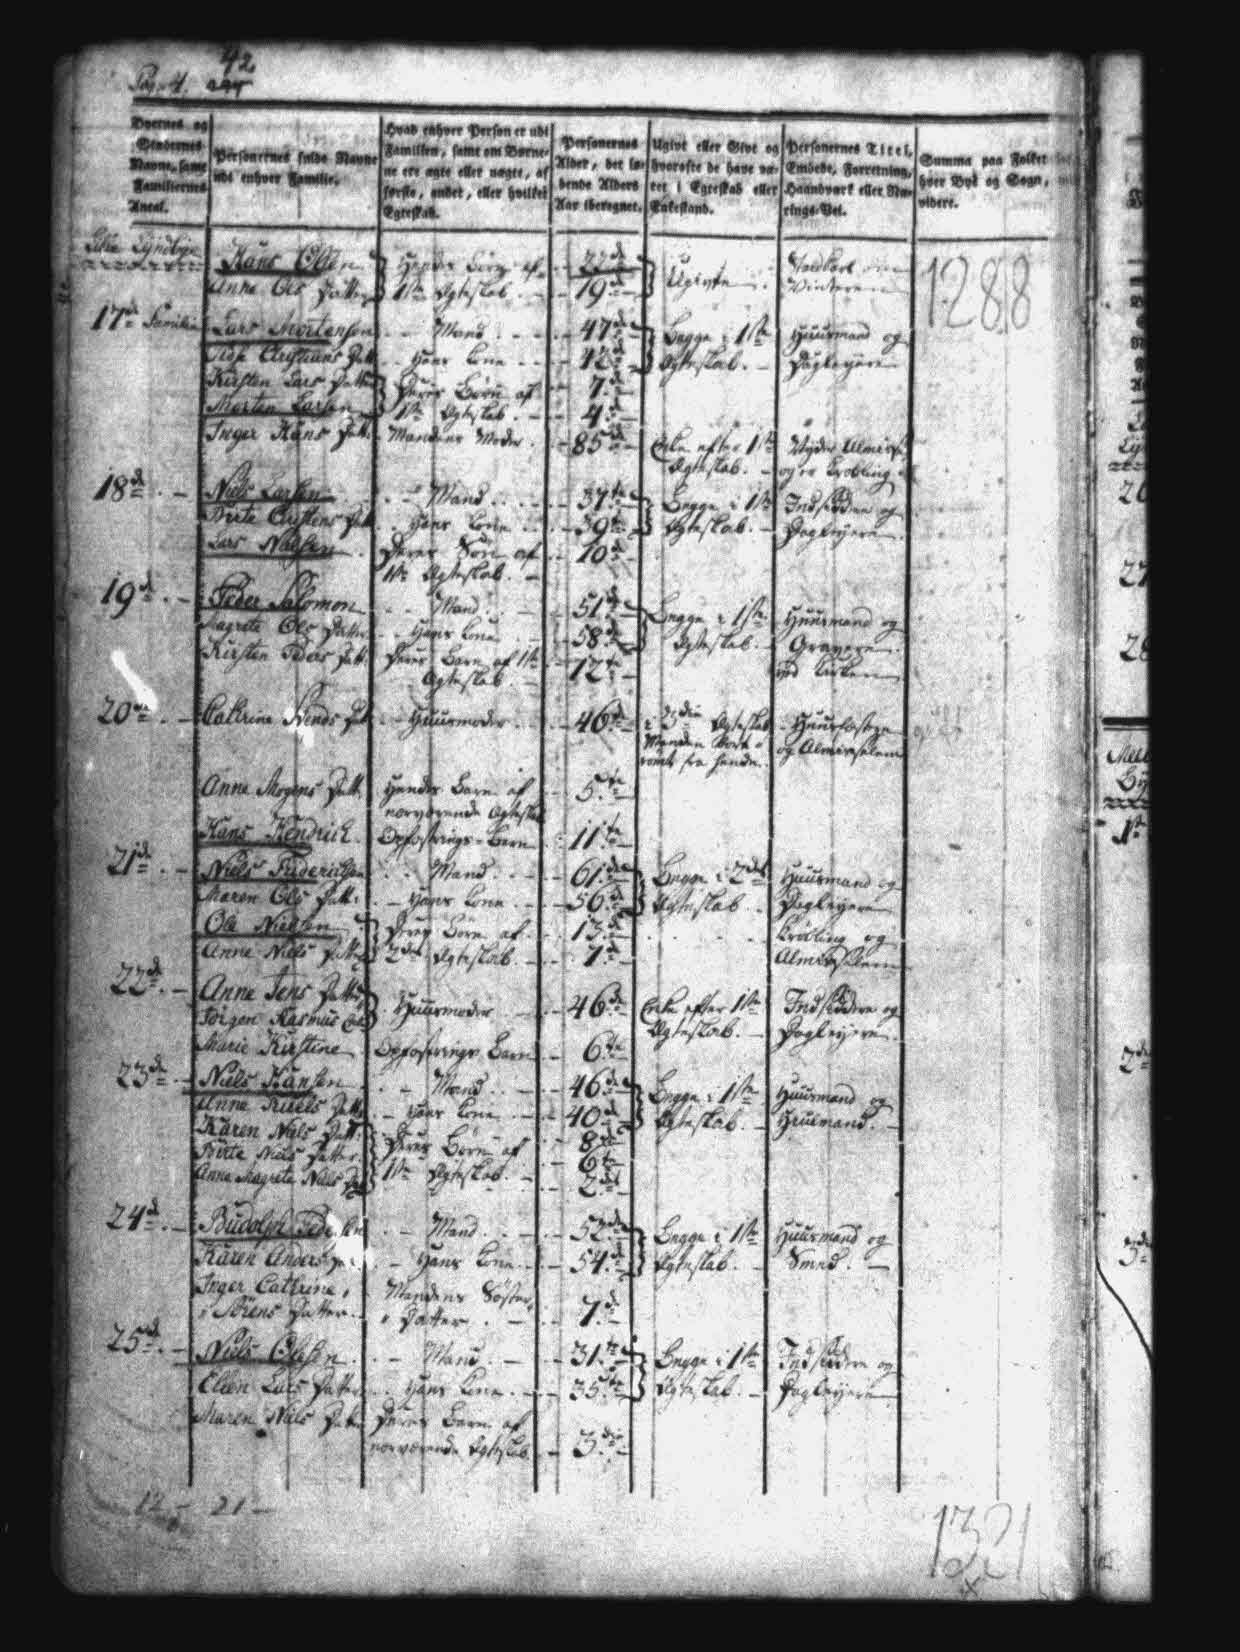 Pag. 4. 42
Byernes og Stedernes Navne, samt Familiernes Antal.
Personernes fulde Navne udi enhver Familie.
Hvad enhver Person er udi Familien, samt om Børnene ere ægte eller uægte, af første, andet, eller hvilket Egteskab.
Personernes Alder, det løbende Alders Aar iberegnet.
Ugivt eller Givt og hvorofte de have været i Egteskab eller Enkestand.
Personernes Titel, Embede, Forretning, Haandværk eller Nærings-Vei.
Summa paa Folket i hver Bye og Sogn, videre.
Lille Lyndbye
Hans Olsen Hendes Børn af 22de Ugivte
Anne Ols Datter 1ste Ægteskab. 19de
1288
17de Familie Lars Mortensen Mand 47de Begge i 1ste Huusmand og
Christians Datt. Hans Kone 42de Ægteskab. Dagleyere
Kirsten Lars Datter Deres Børn af 7de
Morten Larsen 1ste Ægteskab. 4de
Inger Hans Datt. Mandens Moder. 85de Enke efter 1ste Nyder Almisse
Ægteskab. og er Krøbling
18de Niels Larsen Mand 37te Begge i 1ste Indsidder og
Birte Christens Datt. Hans Kone 39te Ægteskab. Dagleyere.
Lars Nielsen Deres Søn af 10de
1ste Ægteskab.
19de Peder Salomon Mand 51de Begge i 1ste Huusmand og
Magrete Ols Datter Hans Kone 58de Ægteskab. Gravere
Kirsten Peders Datt. Deres Barn af 1ste 12te ved Kirken
Ægteskab.
20de Cathrine Svends Datt. Huusmoder 46de i 3die Ægteskab
Manden
fra hende. og Almisselem
Anne Mogens Datt. Hendes Barn af 5te
nærværende Ægteskab
Hans Hendrich. Opfostrings-Barn 11te
21de Niels Friderichsen Mand 61de Begge i 2det Huusmand og
Maren Ols Datt. Hans Kone 56de Ægteskab Dagleyere
Ole Nielsen Deres Børn af 13de Krøbling og
Anne Niels Datter 2det Ægteskab. 7de Almisselem
22de Anne Jens Datter Huusmoder 46de Enke efter 1ste Indsiddere og
Jørgen Rasmus Ægteskab. Dagleyere
Marie Kirstine Opfostrings Barn 6te
23de Niels Hansen Mand 46de Begge i 1ste Huusmand og
Anne Niels Datt. Hans Kone 40de Ægteskab. Hiulmand.
Karen Niels Datt. Deres Børn af 8de
Birte Niels Datter. 1ste Ægteskab. 6te
Anne Magrete Niels Dat 2det
24de Rudolph Pedersen Mand 52de Begge i 1ste Huusmand og
Karen Anders Hans Kone 54de Ægteskab. Smed.
Inger Cathrine Mandens Søster
Sørens Datter. Datter. 7de
25de Niels Olsen Mand 31te Begge i 1ste Indsiddere og
Ellen Lars Datter Hans Kone 35te Ægteskab. Dagleyere
Maren Niels Datter Deres Barn af
nærværende Ægteskab. 3die
12 21
1321